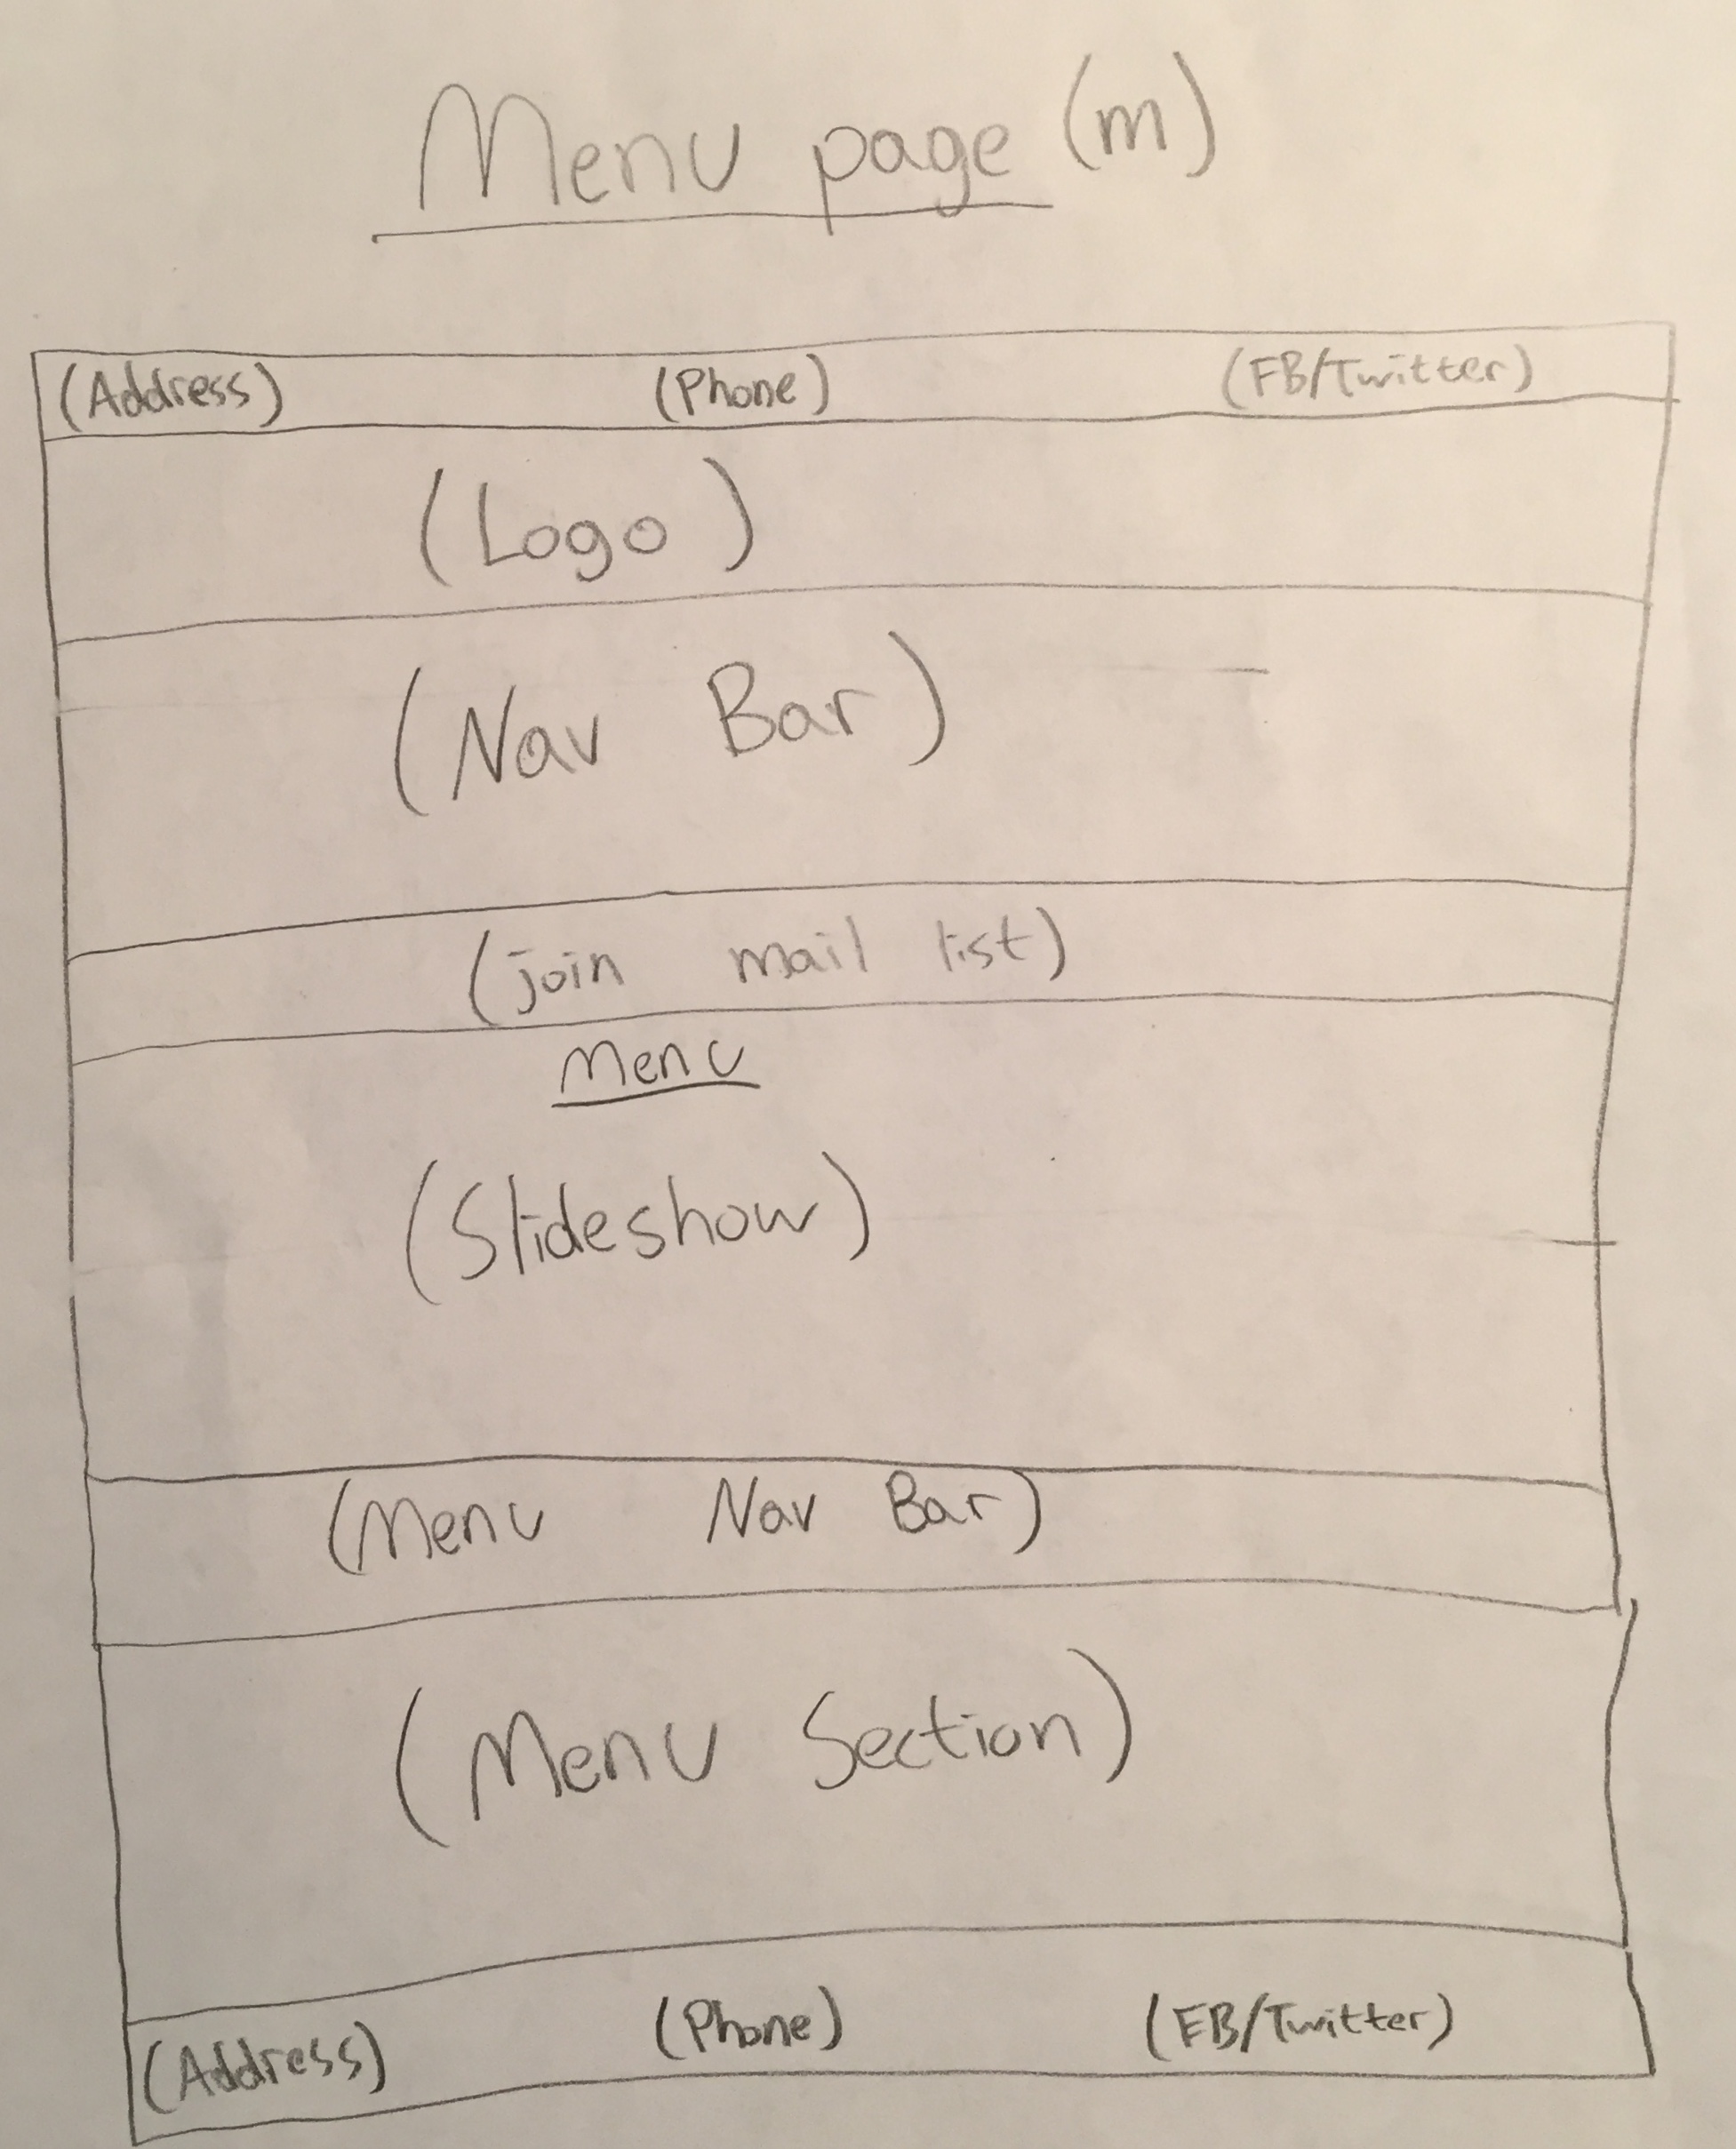 Menu page (m)
(Address) (Phone) (FB/Twitter)
(Logo)
(Nav Bar)
(join mail list)
Menu
(Slideshow)
(Menu Nav Bar)
(Menu Section)
(Address) (Phone) (FB/Twitter)